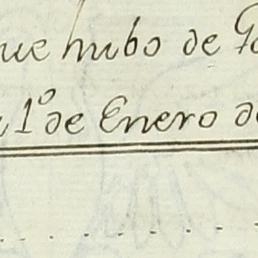 que hubo de
1º de Enero de